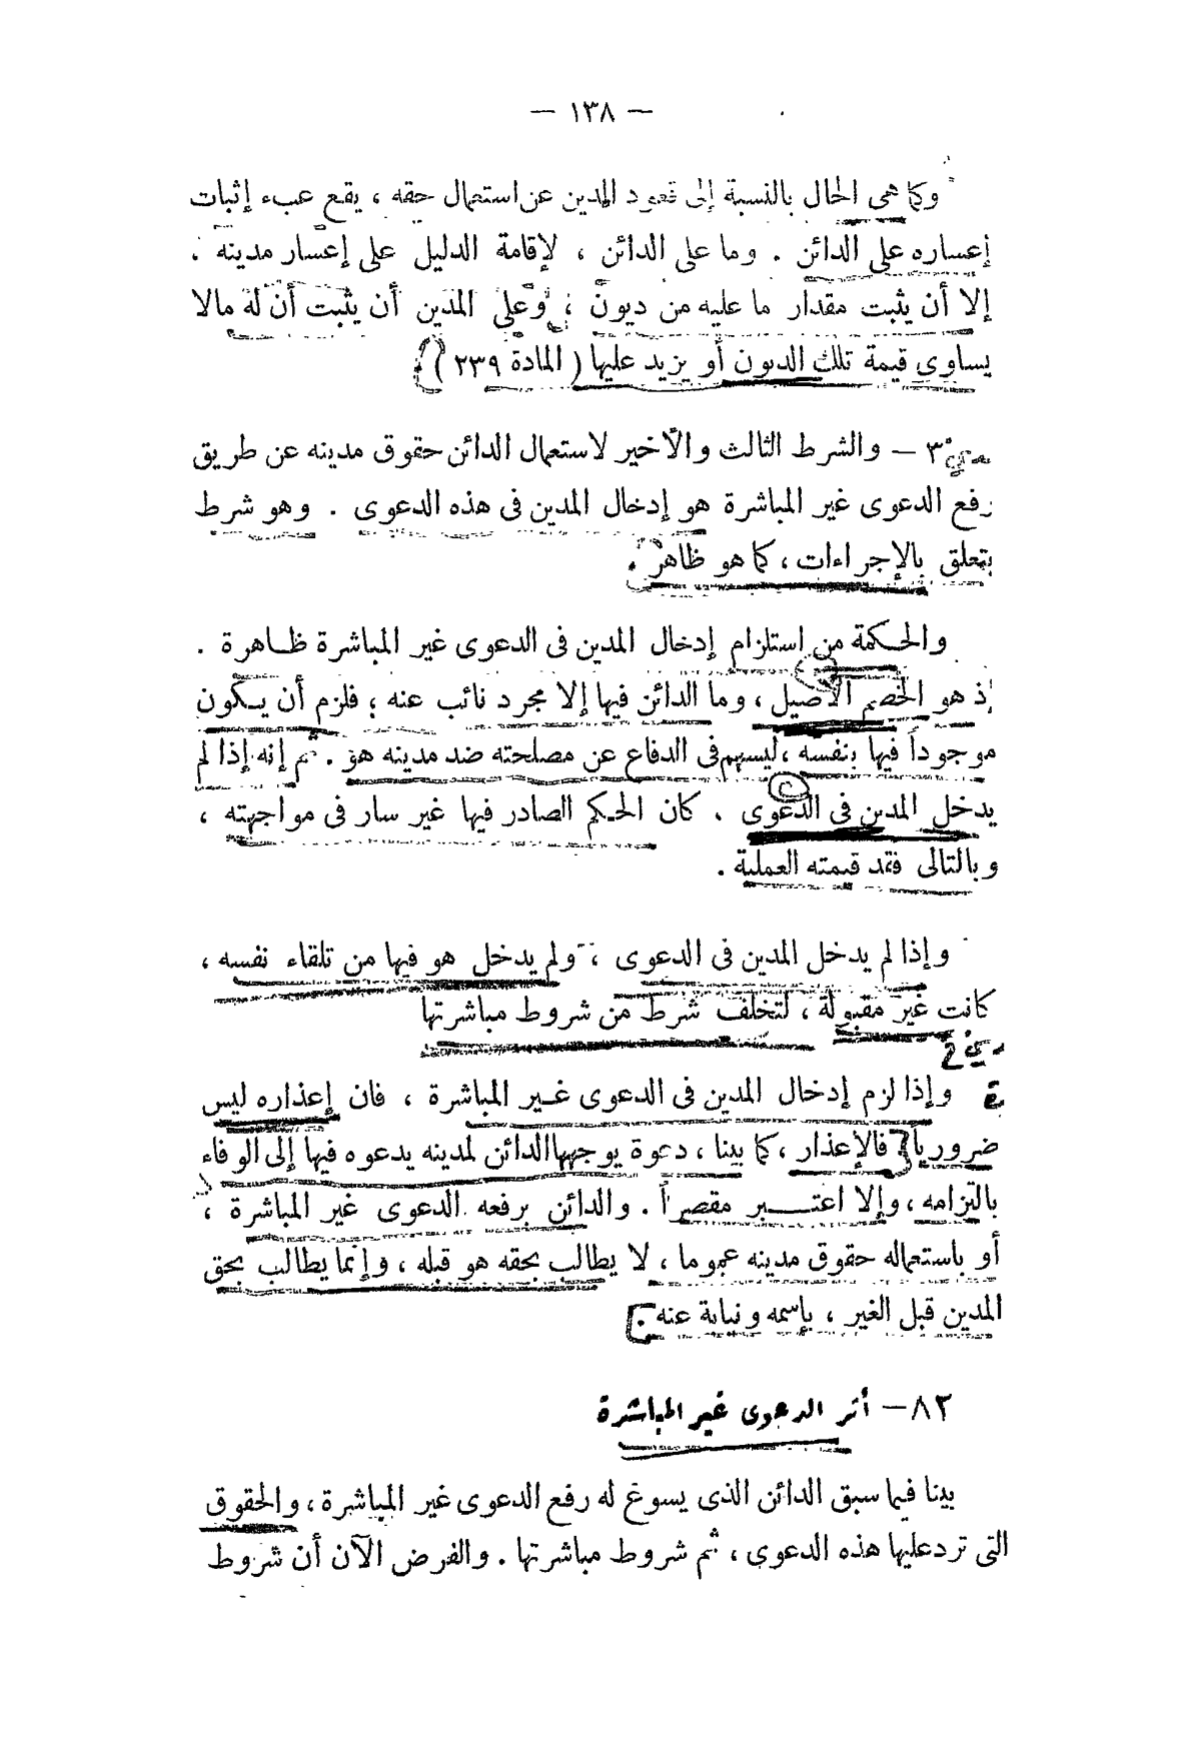 — ١٣٨ —
وكما هى الحال بالنسبة إلى قعود المدين عن استعمال حقه ، يقع عبء إثبات
إعساره على الدائن . وما على الدائن ، لإقامة الدليل على إعسار مدينه .
إلا أن يثبت مقدار ما عليه من ديون ؛ وعلى المدين أن يثبت أن له مالا
يساوى قيمة تلك الديون أو يزيد عليها ( المادة ٢٣٩ )
٣ – والشرط الثالث والأخير لاستعمال الدائن حقوق مدينه عن طريق
رفع الدعوى غير المباشرة هو إدخال المدين فى هذه الدعوى . وهو شرط
يتعلق بالإجراءات ، كما هو ظاهر .
والحكمة من استلزام إدخال المدين فى الدعوى غير المباشرة ظاهرة .
إذ هو الخصم الأصيل ، وما الدائن فيها إلا مجرد نائب عنه ؛ فلزم أن يكون
موجوداً فيها بنفسه ، ليسهم فى الدفاع عن مصلحته ضد مدينه هو . ثم إنه إذا لم
يدخل المدين فى الدعوى . كان الحكم الصادر فيها غير سار فى مواجهته ،
وبالتالى فقد قيمته العملية .
وإذا لم يدخل المدين فى الدعوى ، ولم يدخل هو فيها من تلقاء نفسه ،
كانت غير مقبولة ، لتخلف شرط من شروط مباشرتها
وإذا لزم إدخال المدين فى الدعوى غير المباشرة ، فان إعذاره ليس
ضرورياً فالإعذار ، كما بينا ، دعوة يوجهها الدائن لمدينه يدعوه فيها إلى الوفاء
بالتزامه ، وإلا اعتبر مقصراً . والدائن برفعه الدعوى غير المباشرة ،
أو باستعماله حقوق مدينه عموما ، لا يطالب بحقه هو قبله ، وإنما يطالب بحق
المدين قبل الغير ، بإسمه ونيابة عنه .
٨٢ – أثر الدعوى غير المباشرة
بينا فيما سبق الدائن الذى يسوغ له رفع الدعوى غير المباشرة ، والحقوق
التى ترد عليها هذه الدعوى ، ثم شروط مباشرتها . والفرض الآن أن شروط